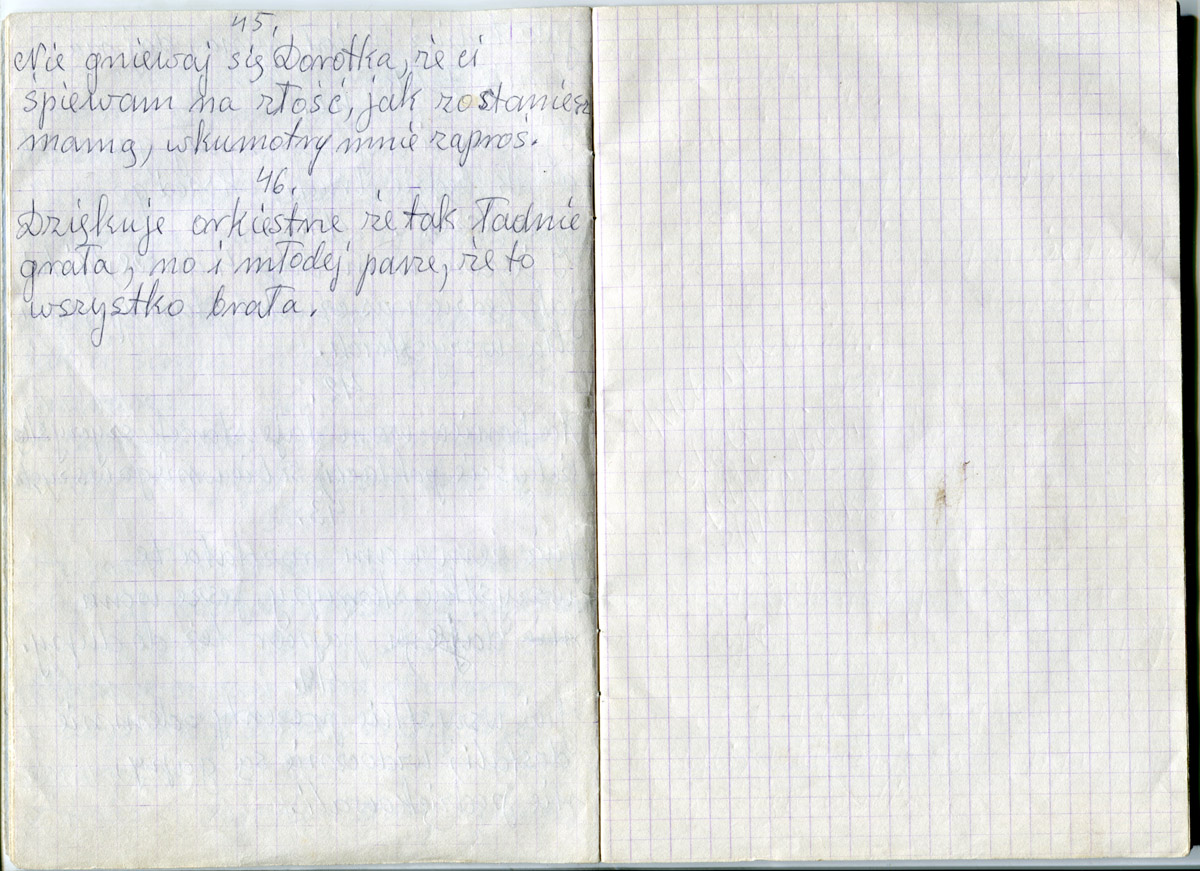 45.
Nie gniewaj się Dorotka, że ci
śpiewam na złość, jak zostaniesz
mamą, wkumotry mnie zaproś.
46.
Dziękuje orkiestrze że tak ładnie
grała, no i młodej parze, że to
wszystko brała.